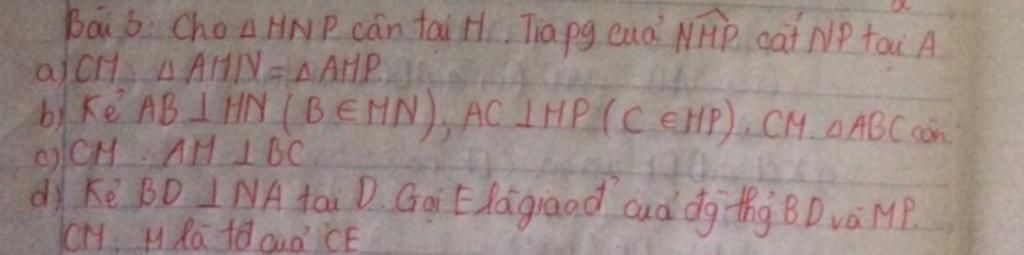 Bài 3: Cho △MNP cân tại M. Tia pg của NMP cắt NP tại A
a) CM △AMN = △AMP
b) Kẻ AB ⊥ MN (B ∈ MN), AC ⊥ MP (C ∈ MP). CM △ABC cân
c) CM: AM ⊥ BC
d) Kẻ BD ⊥ NA tại D. Gọi E là giao đ' của đg thg BD và MP.
CM: M là tđ của CE